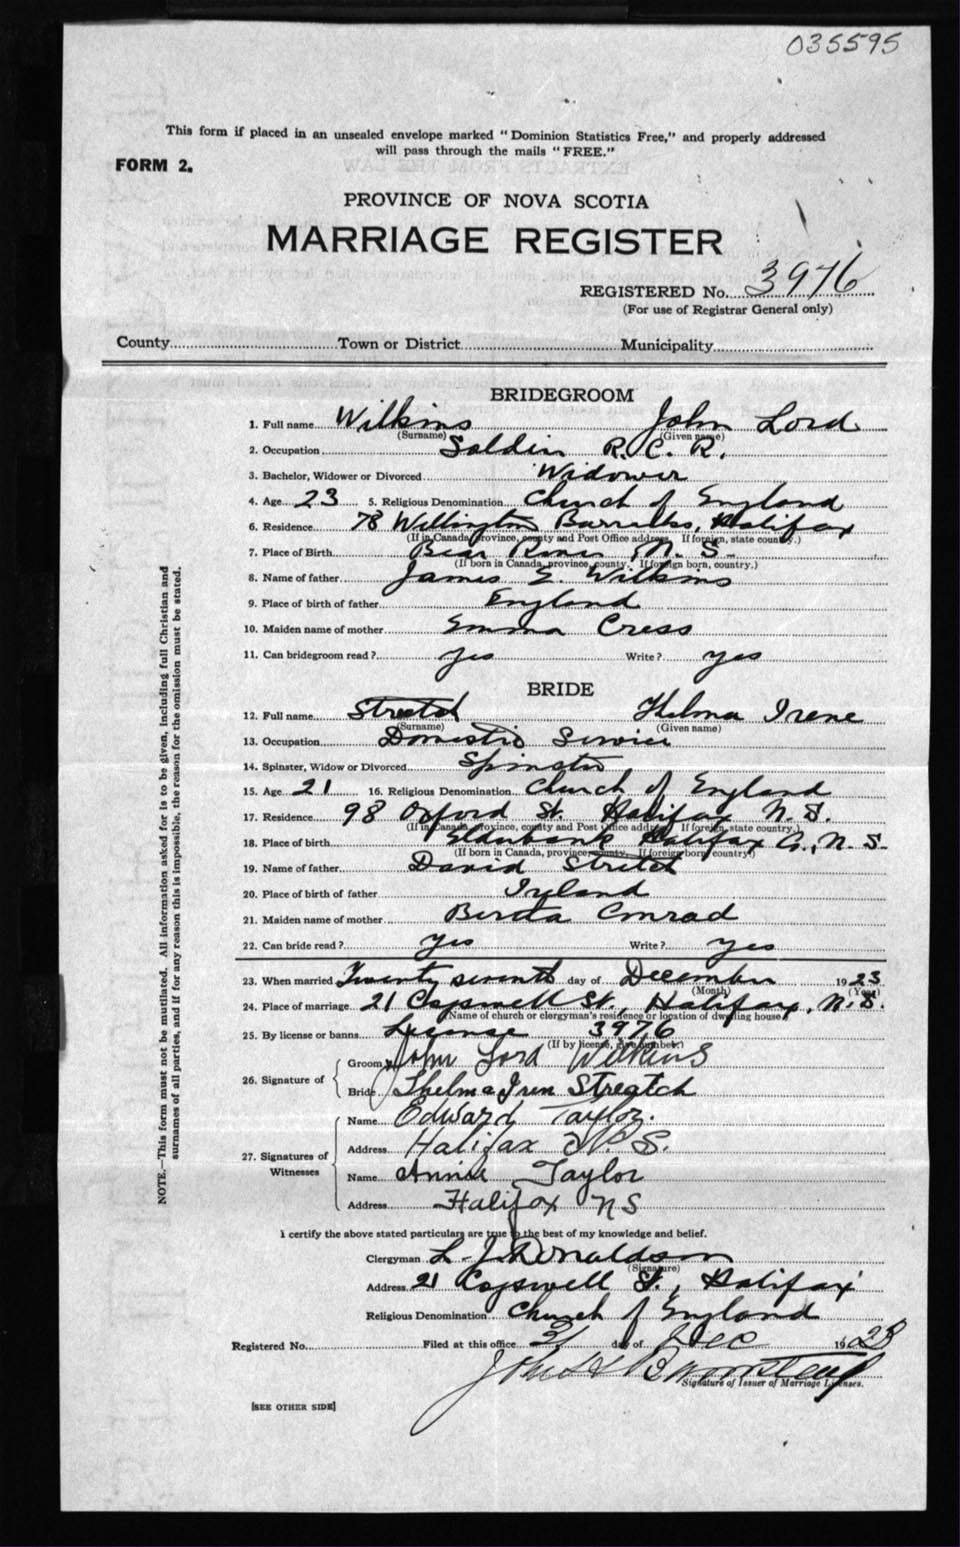 035595
This form if placed in an unsealed envelope marked "Dominion Statistics Free," and properly addressed
will pass through the mails "FREE."
FORM 2.
PROVINCE OF NOVA SCOTIA
MARRIAGE REGISTER
REGISTERED No. 3976
(For use of Registrar General only)
County Town or District Municipality
BRIDEGROOM
1. Full name Wilkins John Lord
(Surname) (Given name)
2. Occupation Soldier R. C. R.
3. Bachelor, Widower or Divorced Widower
4. Age 23 5. Religious Denomination Church of England
6. Residence 78 Wellington Barracks, Halifax
(If in Canada, province, county and Post Office address. If foreign, state country.)
7. Place of Birth Bear River N. S.
(If born in Canada, province, county. If foreign born, country.)
8. Name of father James E. Wilkins
9. Place of birth of father England
10. Maiden name of mother Emma Cress
11. Can bridegroom read? yes Write? yes
BRIDE
12. Full name Stretch Thelma Irene
(Surname) (Given name)
13. Occupation Domestic Service
14. Spinster, Widow or Divorced Spinster
15. Age 21 16. Religious Denomination Church of England
17. Residence 98 Oxford St. Halifax N. S.
(If in Canada, province, county and Post Office address. If foreign, state country.)
18. Place of birth Elderbank Halifax Co., N. S.
(If born in Canada, province, county. If foreign born, country.)
19. Name of father David Stretch
20. Place of birth of father Ireland
21. Maiden name of mother Berta Conrad
22. Can bride read? yes Write? yes
23. When married Twenty seventh day of December 1923
(Month) (Year)
24. Place of marriage 21 Cogswell St., Halifax, N. S.
(Name of church or clergyman's residence or location of dwelling house)
25. By license or banns License 3976
(If by license, give number.)
26. Signature of
Groom John Lord Wilkins
Bride Thelma Iren Streatch
27. Signatures of Witnesses
Name Edward Taylor.
Address Halifax N. S.
Name Annie Taylor
Address Halifax N S
I certify the above stated particulars are true to the best of my knowledge and belief.
Clergyman L. J. Donaldson
(Signature)
Address 21 Cogswell St., Halifax
Religious Denomination Church of England
Registered No. Filed at this office 31 day of Dec 1923
Signature of Issuer of Marriage Licenses.
[SEE OTHER SIDE]
NOTE.—This form must not be mutilated. All information asked for is to be given, including full Christian and
surnames of all parties, and if for any reason this is impossible, the reason for the omission must be stated.